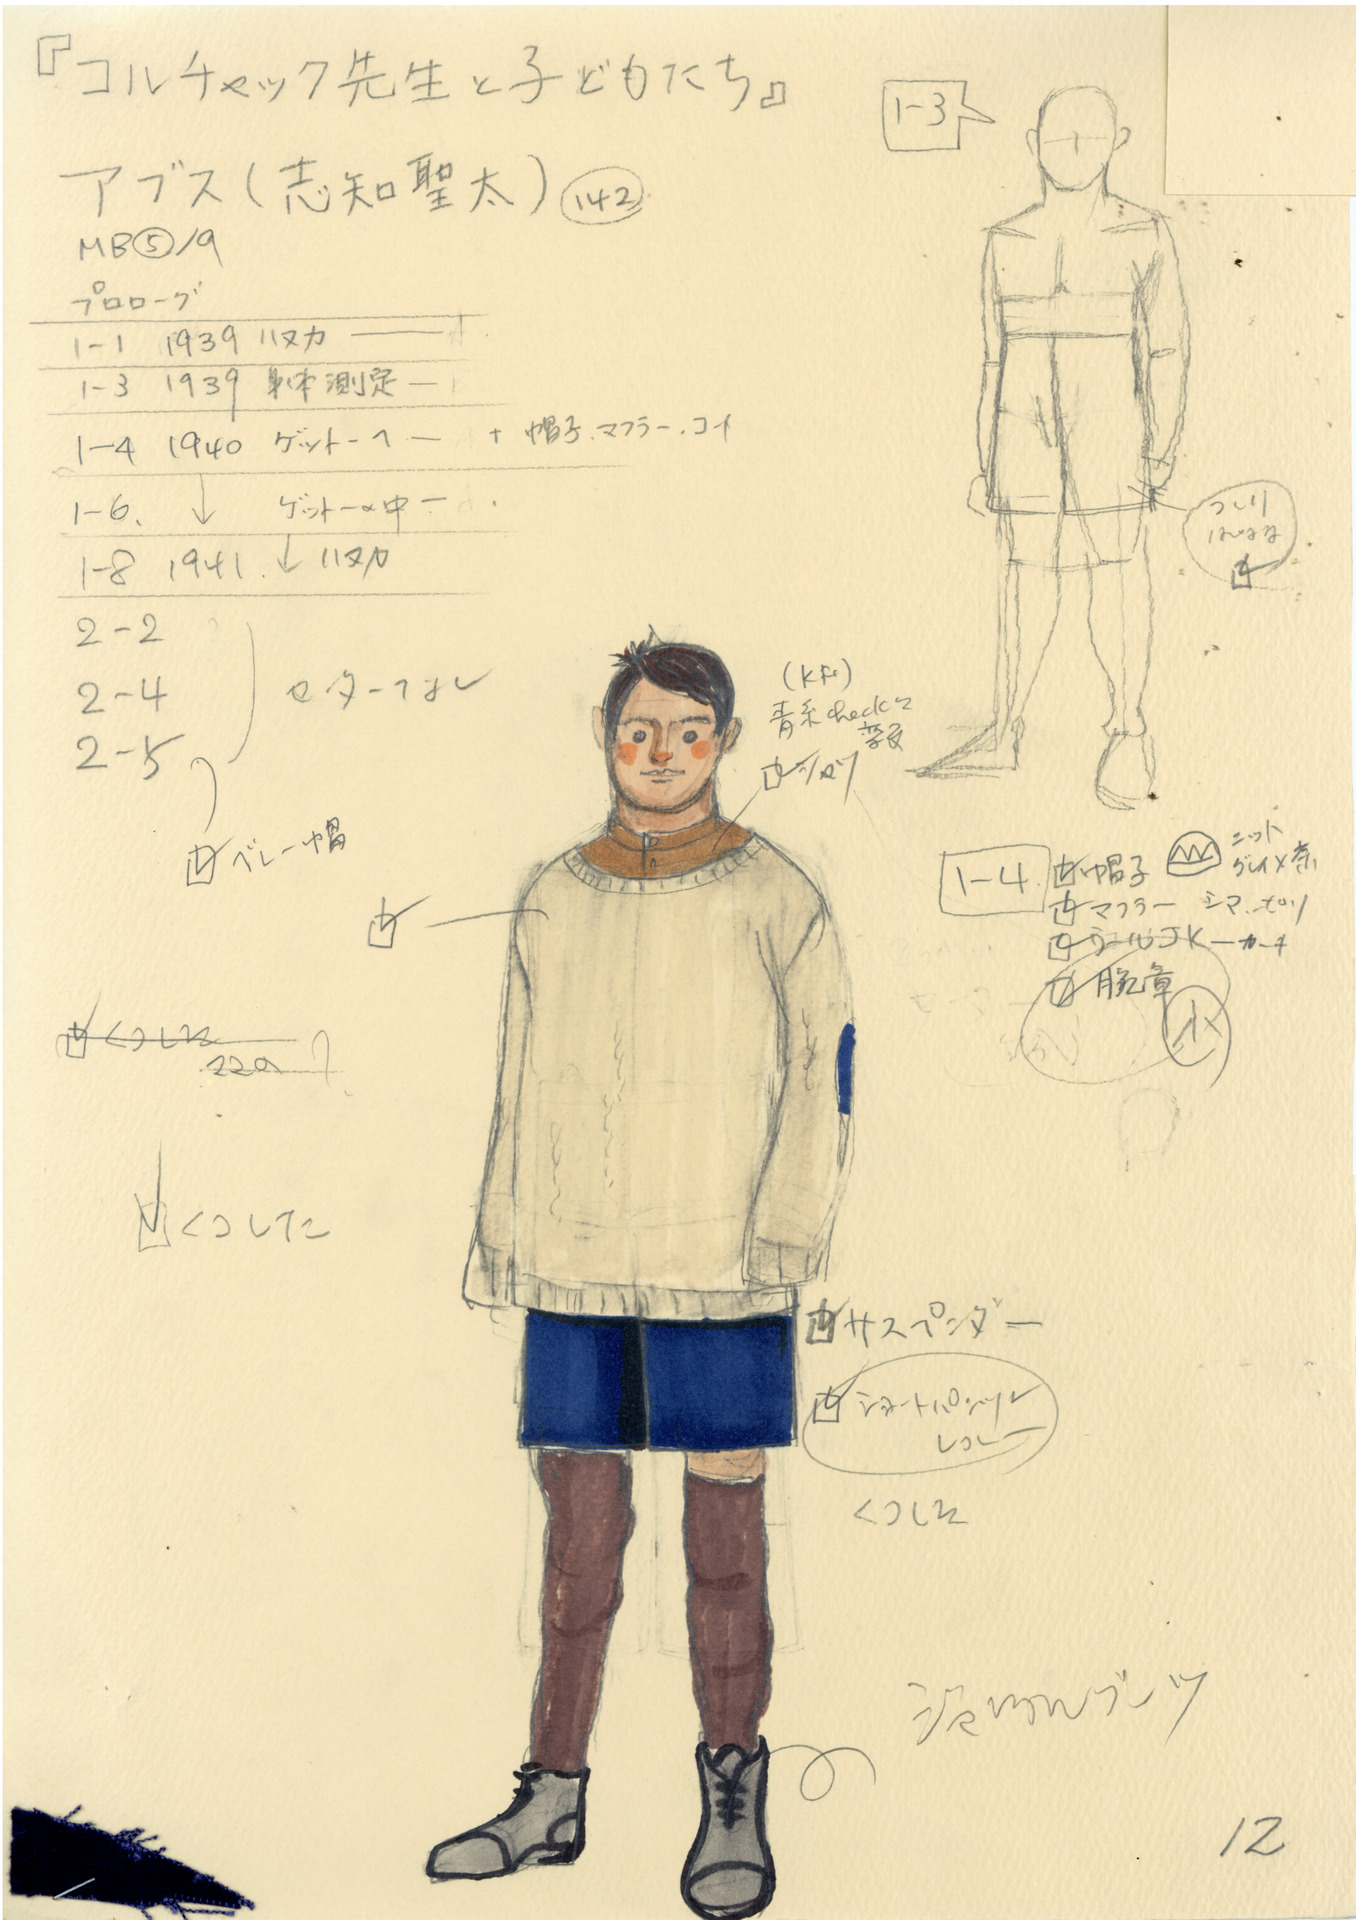 『コルチャック先生と子どもたち』
アブス(志知聖太) 142
MB⑤/9
プロローグ
1-1 1939 ハヌカ
1-3 1939 身体測定
1-4 1940 ゲットーへ + 帽子.マフラー.コート
1-6. ↓ ゲットーの中
1-8 1941. ↓ ハヌカ
2-2
2-4
2-5
セーターなし
ベレー帽
くつした
くつした
1-3
(KFi)
青系checkに
変更
シャツ
1-4
帽子
ニット
グレイ×赤
マフラー
ウールJK
腕章
サスペンダー
ショートパンツ
くつした
ブーツ
12